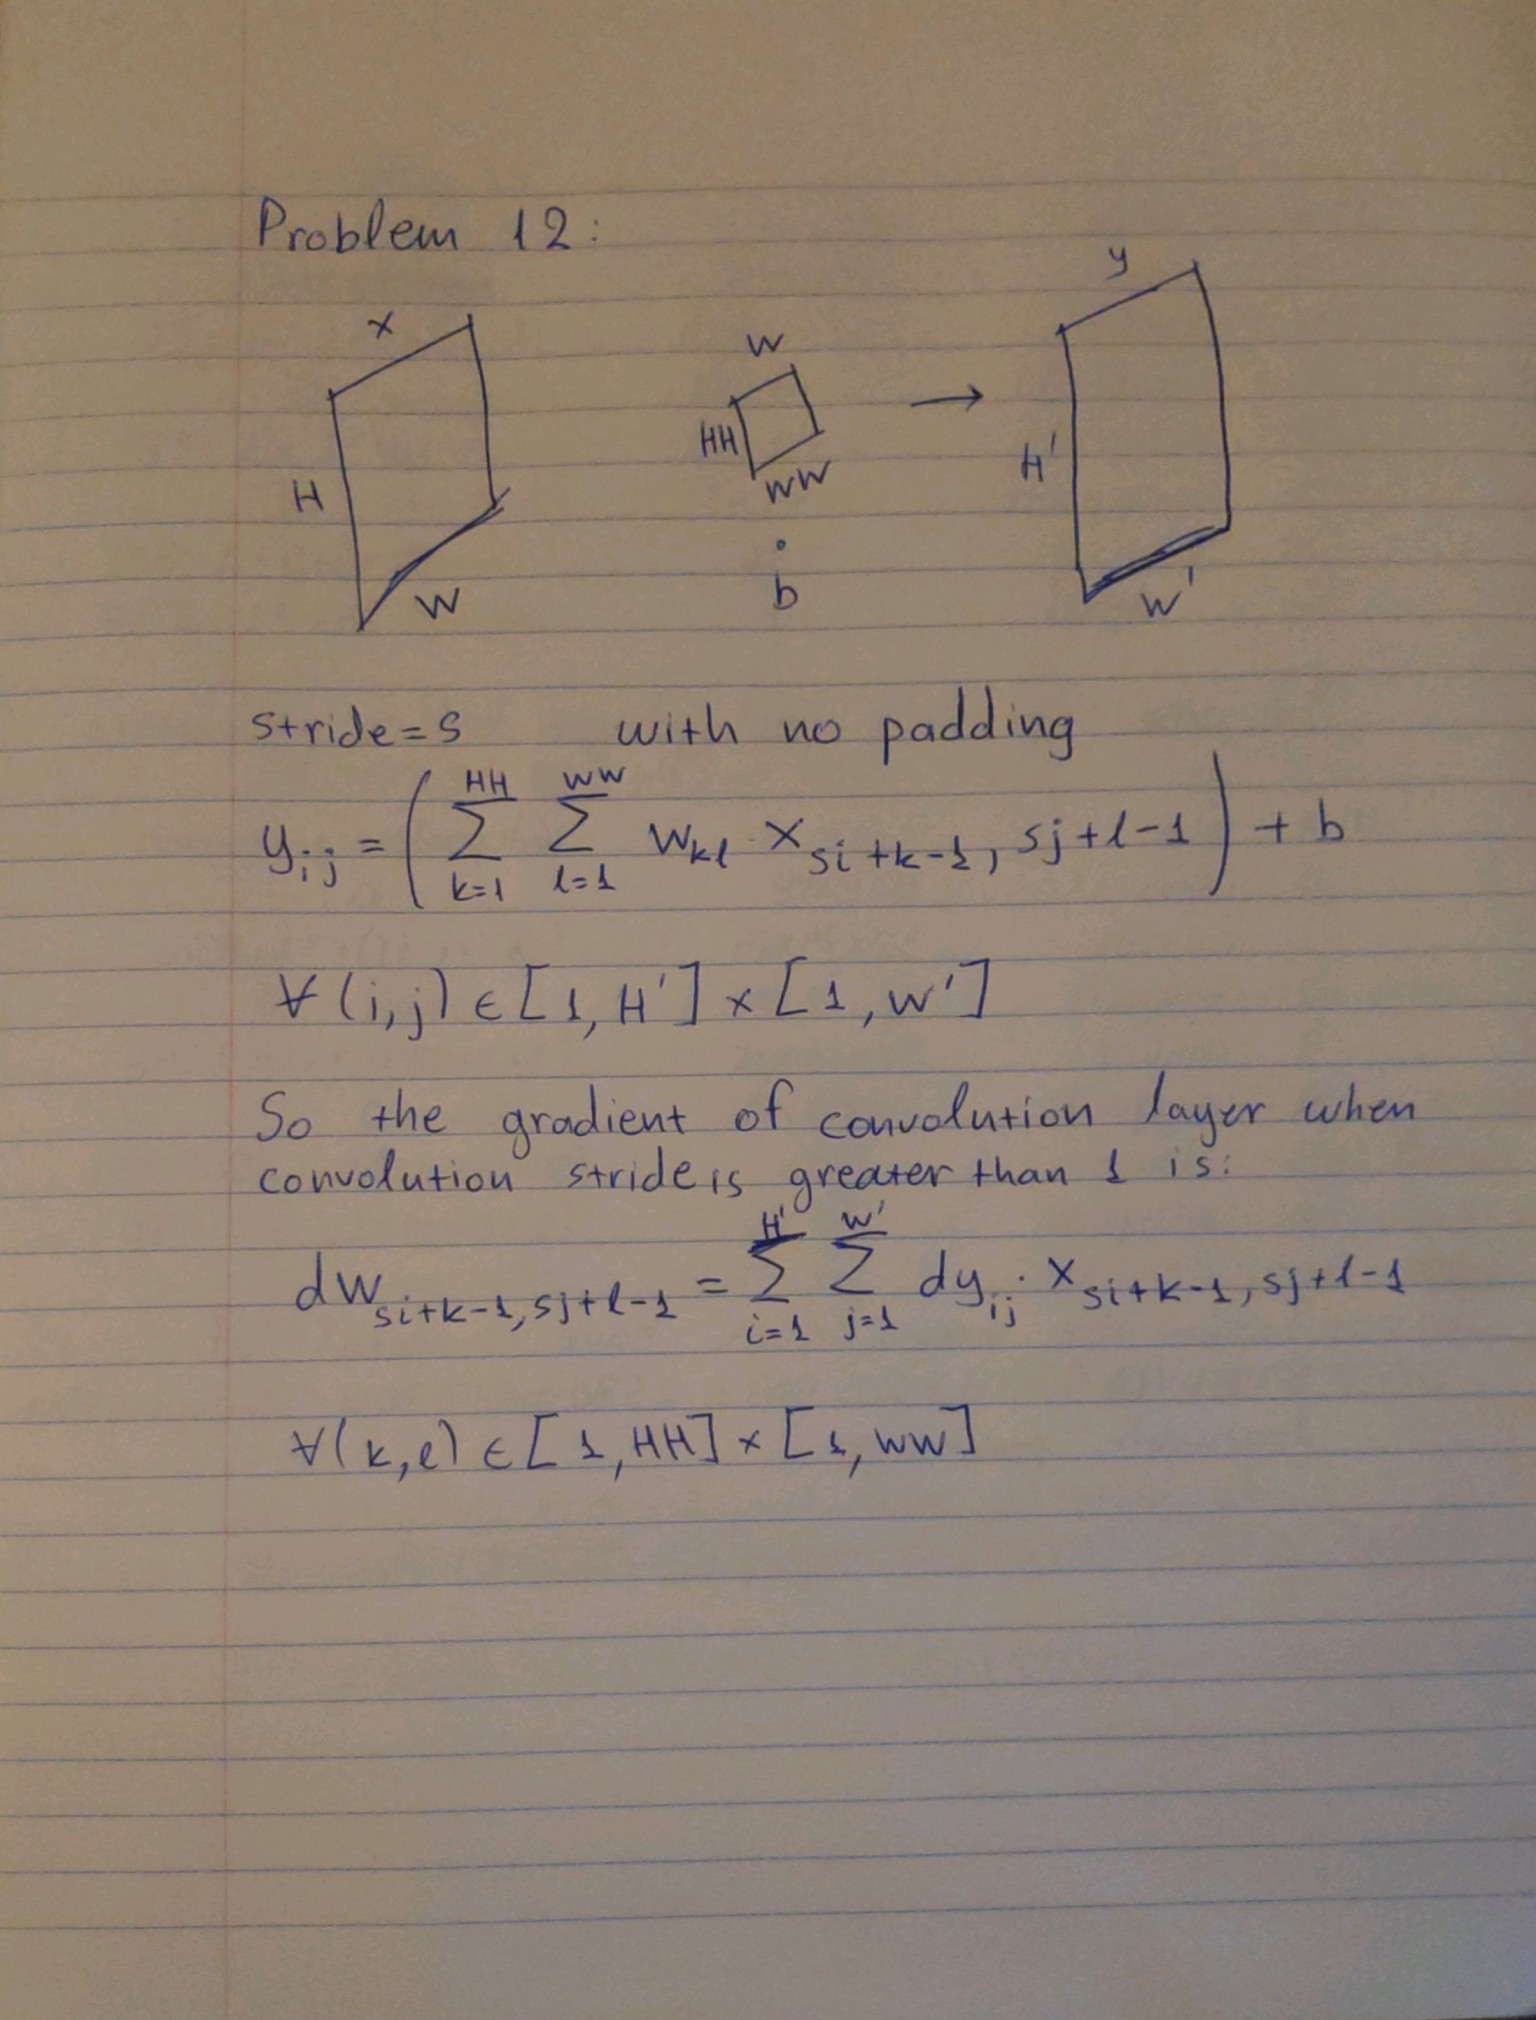 Problem 12:
x
w
y
H
HH
ww
H'
W
b
W'
stride=s with no padding
y_{ij} = ( \sum_{k=1}^{HH} \sum_{l=1}^{WW} w_{kl} · x_{si+k-1, sj+l-1} ) + b
∀(i,j) ∈ [1, H'] × [1, W']
So the gradient of convolution layer when
convolution stride is greater than 1 is:
dw_{si+k-1, sj+l-1} = \sum_{i=1}^{H'} \sum_{j=1}^{W'} dy_{ij} · x_{si+k-1, sj+l-1}
∀(k,l) ∈ [1, HH] × [1, WW]